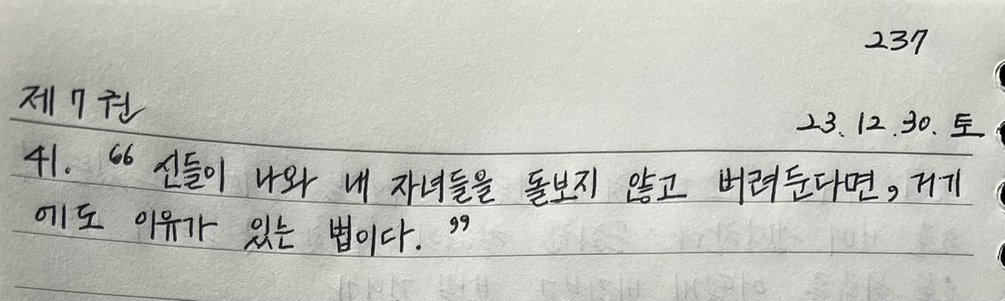 237
제 7 권
23. 12. 30. 토
41. “ 신들이 나와 내 자녀들을 돌보지 않고 버려둔다면, 거기
에도 이유가 있는 법이다. ”